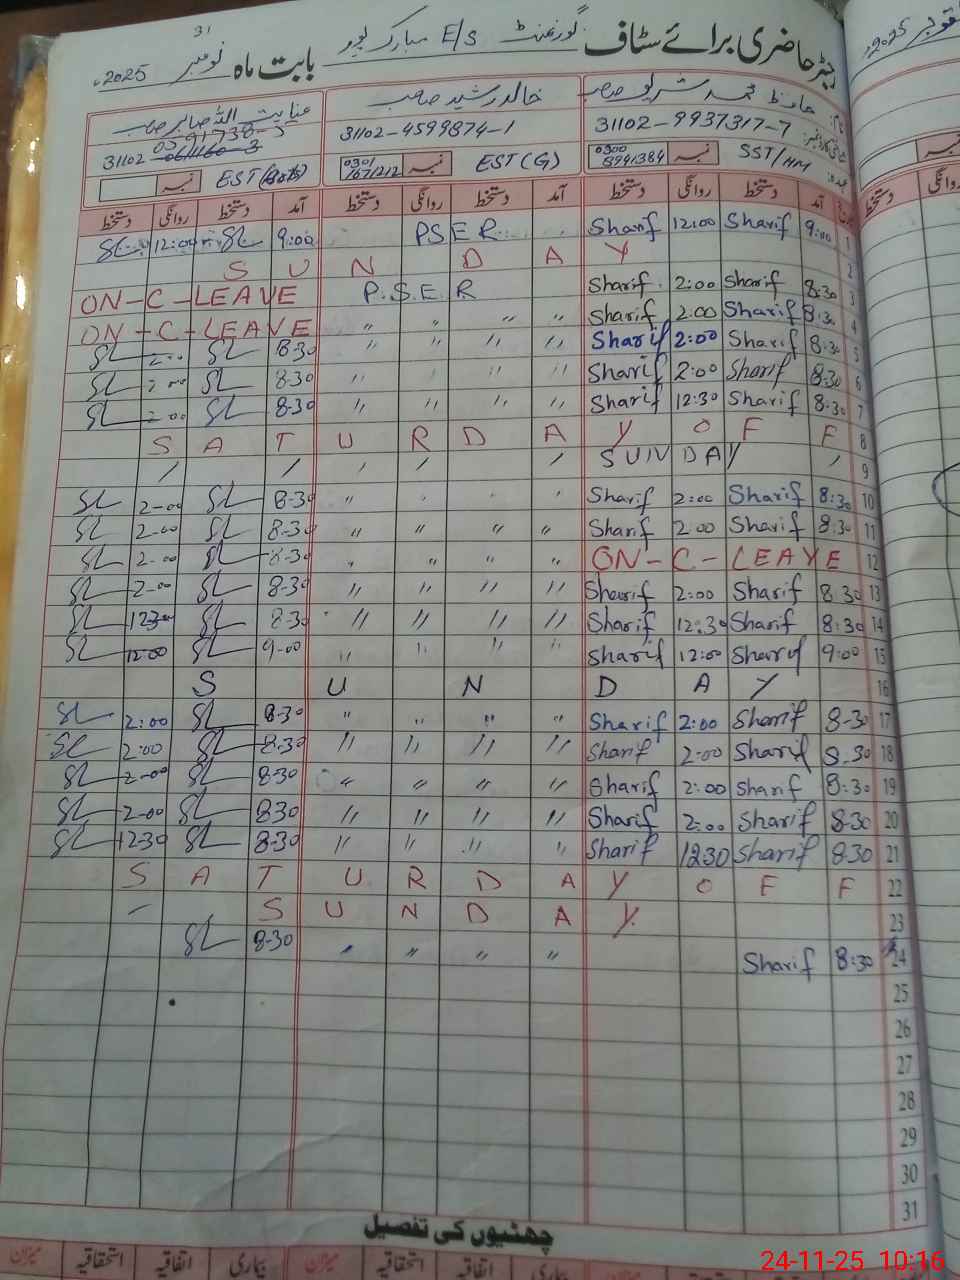 رجسٹر حاضری برائے سٹاف گورنمنٹ E/S مبارک پور بابت ماہ نومبر 2025ء
حافظ محمد شریف صاحب خالد رشید صاحب عنایت اللہ صابر صاحب
31102-9937317-7 31102-4599874-1 31102
SST/HM نمبر 0300 8941384 EST (G) نمبر 0301 EST نمبر
آمد دستخط روانگی دستخط آمد دستخط روانگی دستخط آمد دستخط روانگی دستخط
1 9:00 Sharif 12:00 Sharif PSER 9:00 SL 12:00 SL
2 S U N D A Y
3 8:30 Sharif 2:00 Sharif P.S.E.R ON-C-LEAVE
4 8:30 Sharif 2:00 Sharif " " " " ON-C-LEAVE
5 8:30 Sharif 2:00 Sharif " " " " 8:30 SL 2:00 SL
6 8:30 Sharif 2:00 Sharif " " " " 8-30 SL 2-00 SL
7 8:30 Sharif 12:30 Sharif " " " " 8-30 SL 2-00 SL
8 S A T U R D A Y O F F
9 SUNDAY
10 8:30 Sharif 2:00 Sharif " " " " 8-30 SL 2-00 SL
11 8:30 Sharif 2:00 Sharif " " " " 8-30 SL 2-00 SL
12 ON-C-LEAVE " " " " 8-30 SL 2-00 SL
13 8:30 Sharif 2:00 Sharif " " " " 8-30 SL 2-00 SL
14 8:30 Sharif 12:30 Sharif " " " " 8-30 SL 1230 SL
15 9:00 Sharif 12:00 Sharif " " " " 9-00 SL 12-00 SL
16 S U N D A Y
17 8-30 Sharif 2:00 Sharif " " " " 8-30 SL 2:00 SL
18 8-30 Sharif 2:00 Sharif " " " " 8-30 SL 2:00 SL
19 8:30 Sharif 2:00 Sharif " " " " 8-30 SL 2-00 SL
20 8-30 Sharif 2:00 Sharif " " " " 830 SL 2-00 SL
21 8-30 Sharif 1230 Sharif " " " " 8-30 SL 12-30 SL
22 S A T U R D A Y O F F
23 S U N D A Y
24 8:30 Sharif " " " " 8-30 SL
25
26
27
28
29
30
31
چھٹیوں کی تفصیل
بیماری اتفاقیہ استحقاقیہ میزان بیماری اتفاقیہ استحقاقیہ میزان
24-11-25 10:16